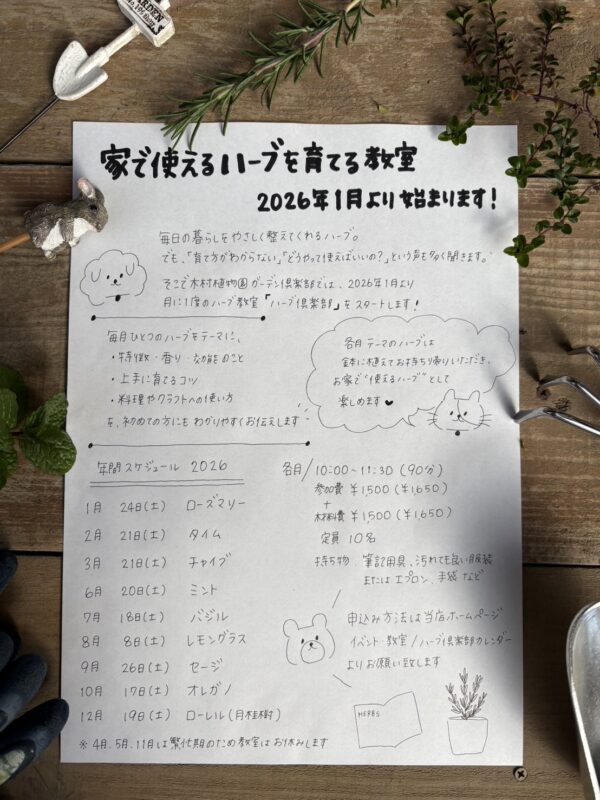 GARDEN
家で使えるハーブを育てる教室
2026年1月より始まります!
毎日の暮らしをやさしく整えてくれるハーブ。
でも、「育て方がわからない」「どうやって使えばいいの?」という声も多く聞きます。
そこで木村植物園ガーデン倶楽部では、2026年1月より
月に1度のハーブ教室「ハーブ倶楽部」をスタートします!
毎月ひとつのハーブをテーマに、
・特徴・香り・効能のこと
・上手に育てるコツ
・料理やクラフトへの使い方
を、初めての方にもわかりやすくお伝えします
各月テーマのハーブは
鉢に植えてお持ち帰りいただき、
お家で"使えるハーブ"として
楽しめます♥
年間スケジュール 2026
1月 24日(土) ローズマリー
2月 21日(土) タイム
3月 21日(土) チャイブ
6月 20日(土) ミント
7月 18日(土) バジル
8月 8日(土) レモングラス
9月 26日(土) セージ
10月 17日(土) オレガノ
12月 19日(土) ローレル(月桂樹)
※ 4月、5月、11月は繁忙期のため教室はお休みします
各月/10:00~11:30 (90分)
参加費 ¥1,500 (¥1,650)
+
材料費 ¥1,500 (¥1,650)
定員 10名
持ち物 筆記用具、汚れても良い服装
またはエプロン、手袋など
申込み方法は当店ホームページ
イベント・教室/ハーブ倶楽部カレンダー
よりお願い致します
HERBS